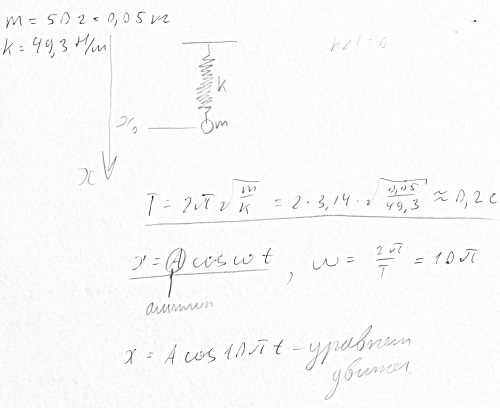 m = 50 г = 0,05 кг
k = 49,3 Н/м
k
x₀
m
x
T = 2π√(m/k) = 2·3,14·√(0,05/49,3) ≈ 0,2 с
x = A cos ωt , ω = 2π/T = 10π
x = A cos 10πt - уравнен
движен